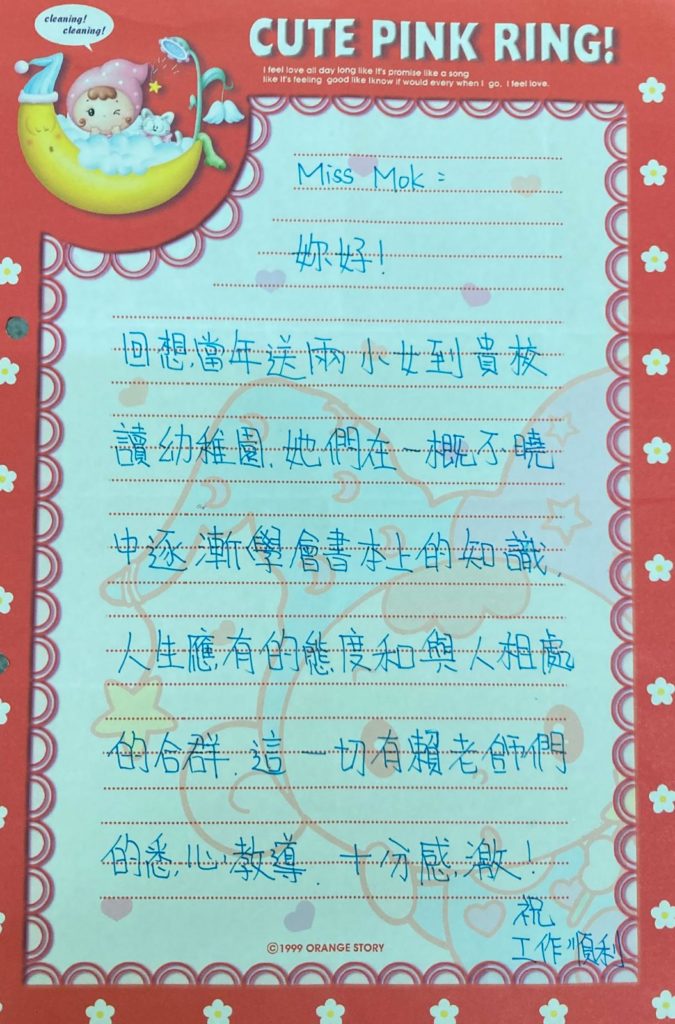 cleaning!
cleaning!
CUTE PINK RING!
I feel love all day long like it's promise like a song
like it's feeling good like Iknow if would every when I go, I feel love.
Miss Mok：
妳好！
回想,當年送兩小女到貴校
讀幼稚園,她們在一概不曉
中逐漸學會書本上的知識,
人生應有的態度和與人相處
的合群,這一切有賴老師們
的悉心教導,十分感激！
祝
工作順利
©1999 ORANGE STORY